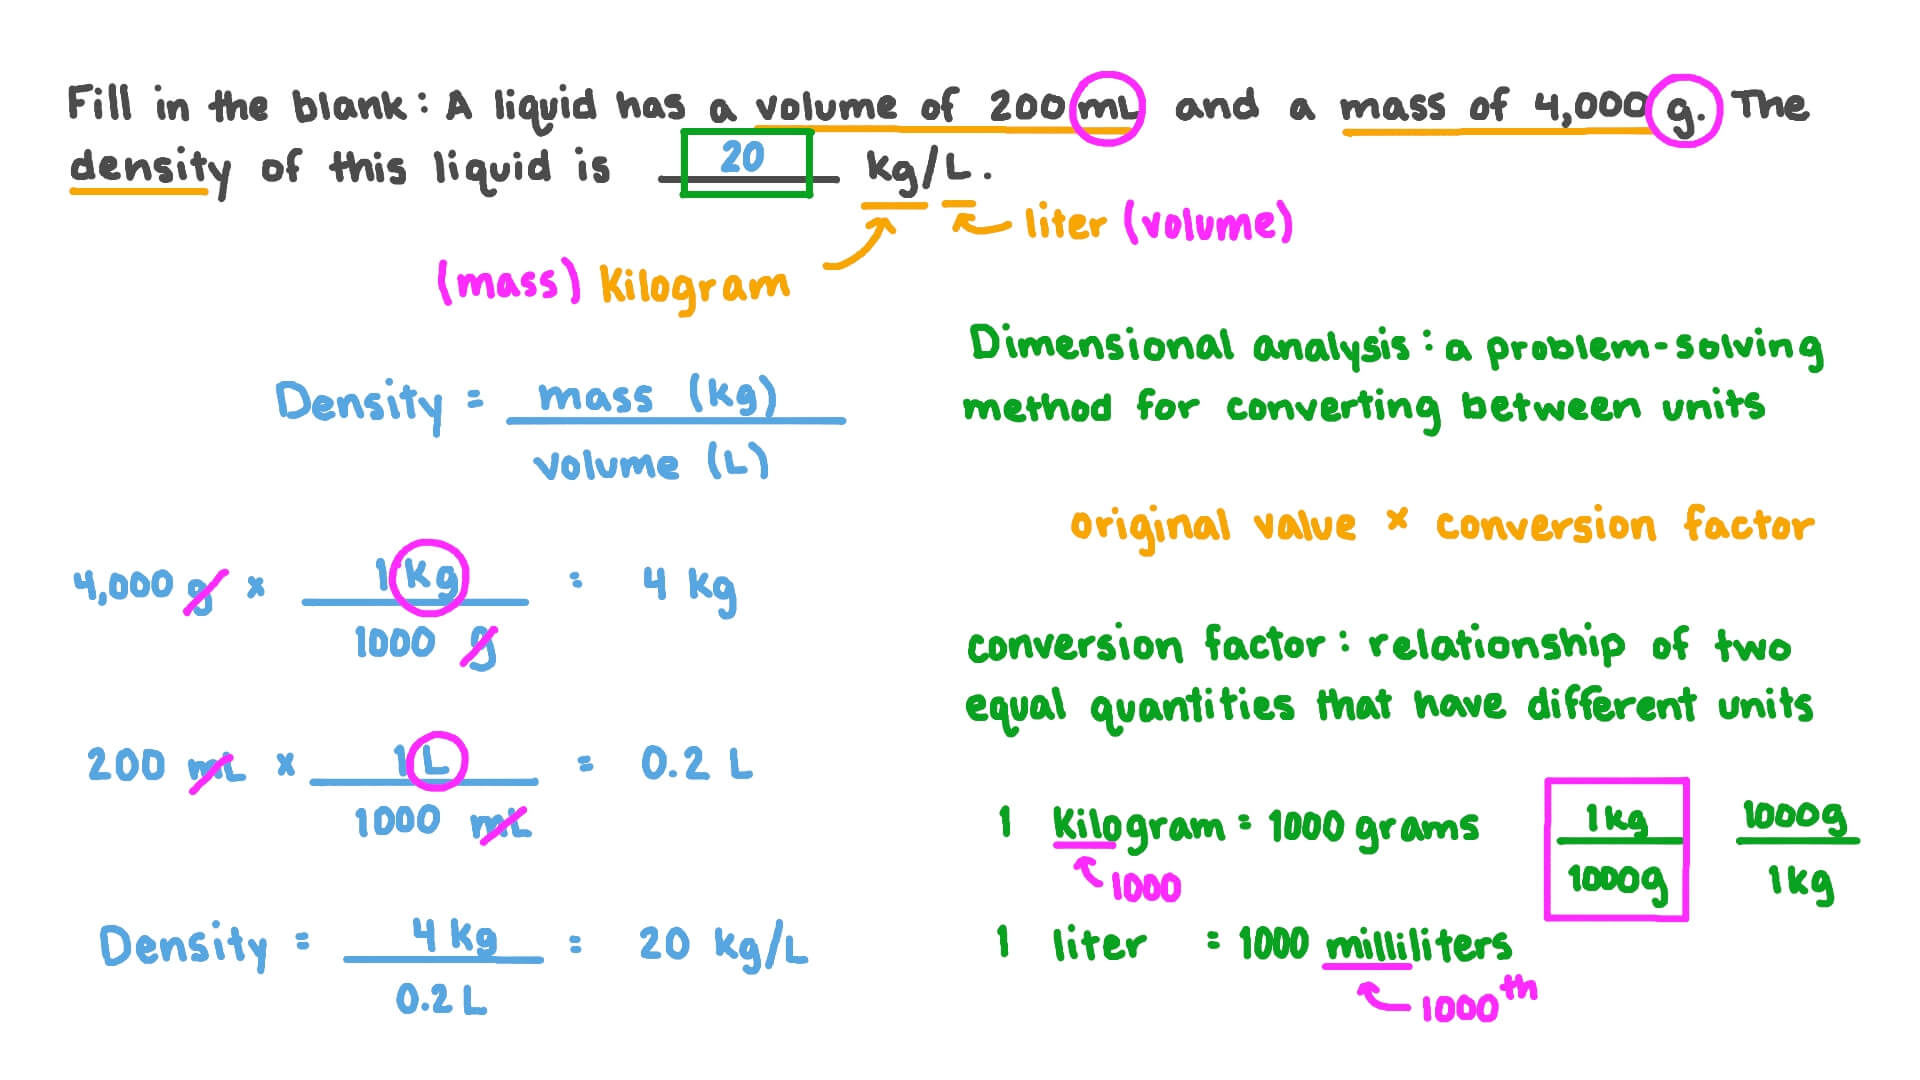 Fill in the blank: A liquid has a volume of 200 mL and a mass of 4,000 g. The
density of this liquid is 20 kg/L.
liter (volume)
(mass) Kilogram
Density = mass (kg) / volume (L)
4,000 g × 1 kg / 1000 g = 4 kg
200 mL × 1 L / 1000 mL = 0.2 L
Density = 4 kg / 0.2 L = 20 kg/L
Dimensional analysis: a problem-solving
method for converting between units
original value × conversion factor
conversion factor: relationship of two
equal quantities that have different units
1 Kilogram = 1000 grams 1 kg / 1000g 1000g / 1 kg
1000
1 liter = 1000 milliliters
1000th